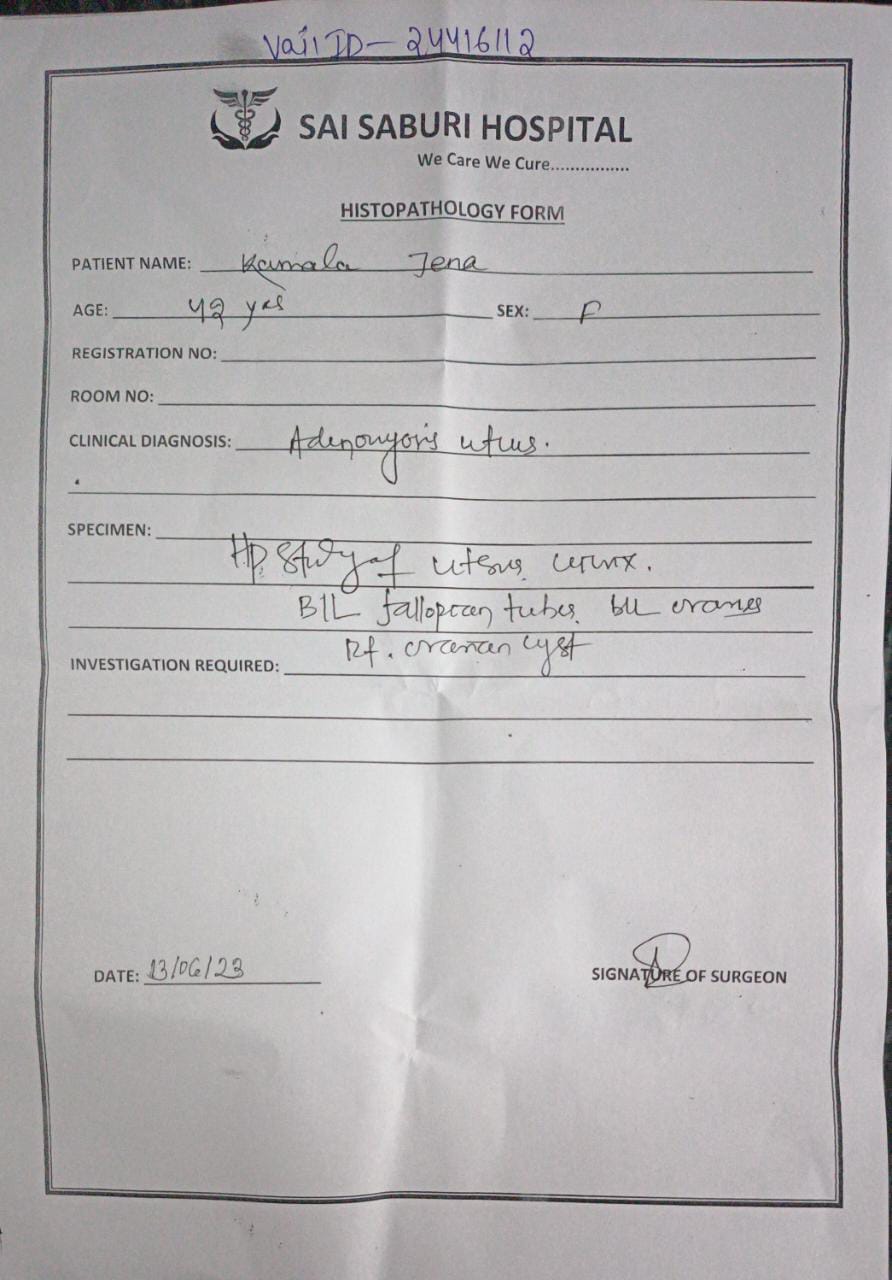 Vail ID - 24416112
SAI SABURI HOSPITAL
We Care We Cure................
HISTOPATHOLOGY FORM
PATIENT NAME: Kamala Jena
AGE: 42 yrs SEX: F
REGISTRATION NO:
ROOM NO:
CLINICAL DIAGNOSIS: Adenomyosis utrus.
SPECIMEN:
Hp study of uterus cervix.
B/L fallopian tubes. b/L ovaries
Rt. ovarian cyst
INVESTIGATION REQUIRED:
DATE: 13/06/23 SIGNATURE OF SURGEON